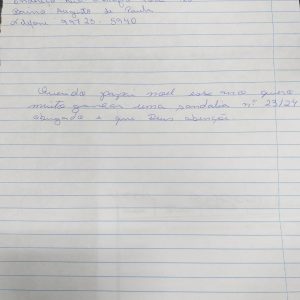 Bruno Augusto de Paula
99725-5940
Querido papai noel esse ano quero
muito ganhar uma sandalia nº 23/24
obrigado e que Deus abençoe